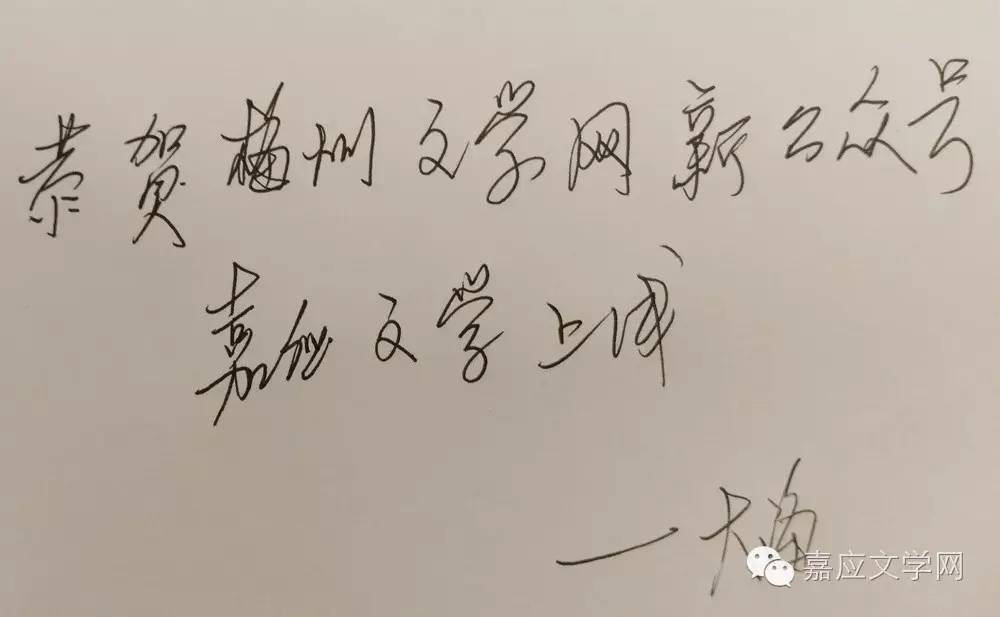 恭贺梅州文学网新公众号
嘉应文学上线
一大
嘉应文学网